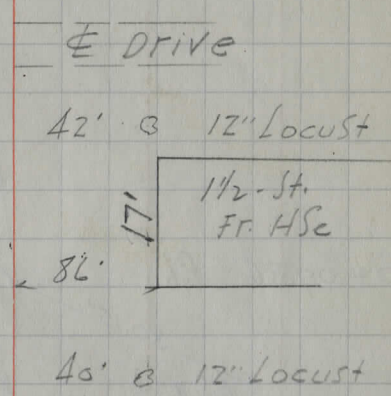 ℄ Drive
42' 12" Locust
1½-St.
17' Fr. HSe
86'
40' 12" Locust